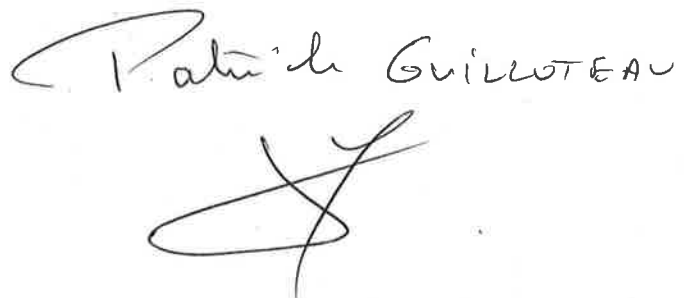 Patrick GUILLOTEAU